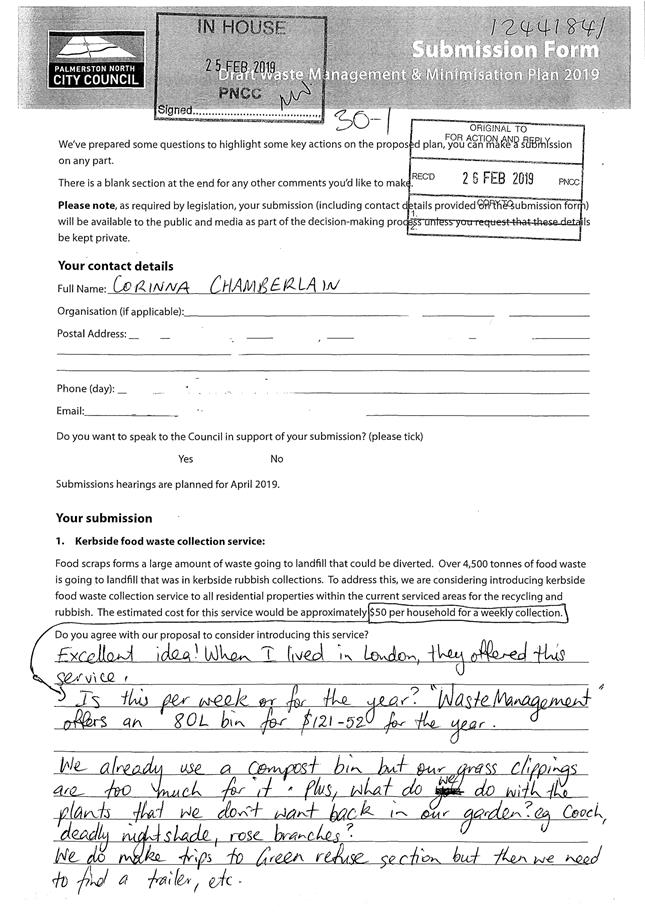 IN HOUSE
25 FEB 2019
PNCC
Signed
1244184/
PALMERSTON NORTH
CITY COUNCIL
Submission Form
Draft Waste Management & Minimisation Plan 2019
30-1
ORIGINAL TO
FOR ACTION AND REPLY
REC'D 26 FEB 2019 PNCC
COPY TO
1.
2.
We've prepared some questions to highlight some key actions on the proposed plan, you can make a submission
on any part.
There is a blank section at the end for any other comments you'd like to make.
Please note, as required by legislation, your submission (including contact details provided on the submission form)
will be available to the public and media as part of the decision-making process unless you request that these details
be kept private.
Your contact details
Full Name: CORINNA CHAMBERLAIN
Organisation (if applicable):
Postal Address:
Phone (day):
Email:
Do you want to speak to the Council in support of your submission? (please tick)
Yes No
Submissions hearings are planned for April 2019.
Your submission
1. Kerbside food waste collection service:
Food scraps forms a large amount of waste going to landfill that could be diverted. Over 4,500 tonnes of food waste
is going to landfill that was in kerbside rubbish collections. To address this, we are considering introducing kerbside
food waste collection service to all residential properties within the current serviced areas for the recycling and
rubbish. The estimated cost for this service would be approximately $50 per household for a weekly collection.
Do you agree with our proposal to consider introducing this service?
Excellent idea! When I lived in London, they offered this
service.
Is this per week or for the year? "Waste Management"
offers an 80L bin for $121-52 for the year.
We already use a compost bin but our grass clippings
are too much for it. Plus, what do we do with the
plants that we don't want back in our garden? eg Cooch,
deadly nightshade, rose branches?
We do make trips to Green refuse section but then we need
to find a trailer, etc.